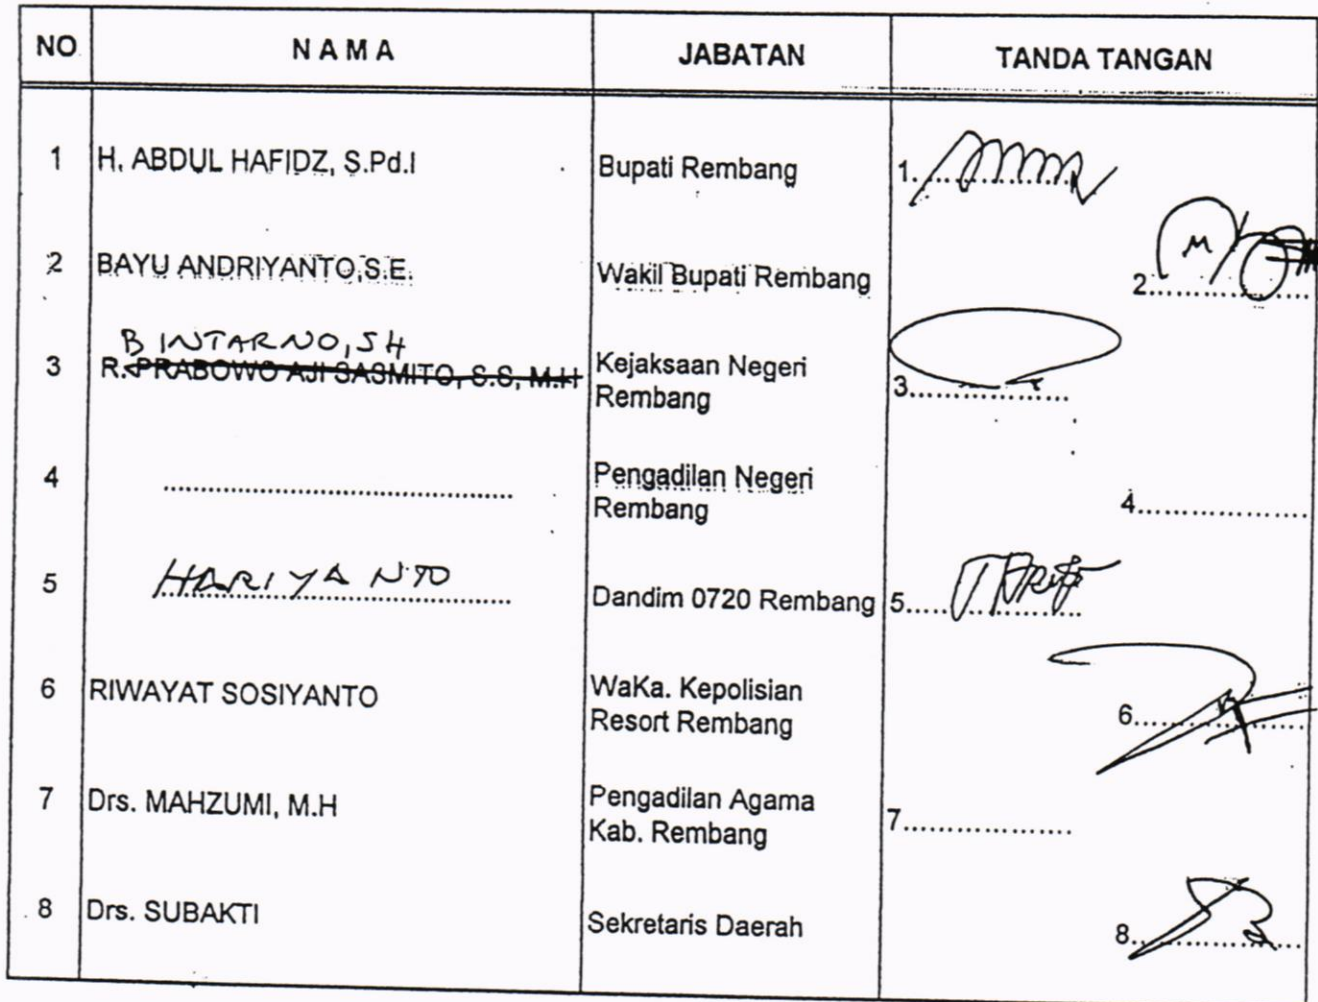 NO NAMA JABATAN TANDA TANGAN
1 H. ABDUL HAFIDZ, S.Pd.I Bupati Rembang 1..................
2 BAYU ANDRIYANTO,S.E. Wakil Bupati Rembang 2..................
BINTARNO, SH
3 R. PRABOWO AJI SASMITO, S.S, M.H Kejaksaan Negeri 3..................
Rembang
4 .................................... Pengadilan Negeri 4..................
Rembang
5 HARIYANTO Dandim 0720 Rembang 5..................
6 RIWAYAT SOSIYANTO WaKa. Kepolisian 6..................
Resort Rembang
7 Drs. MAHZUMI, M.H Pengadilan Agama 7..................
Kab. Rembang
8 Drs. SUBAKTI Sekretaris Daerah 8..................